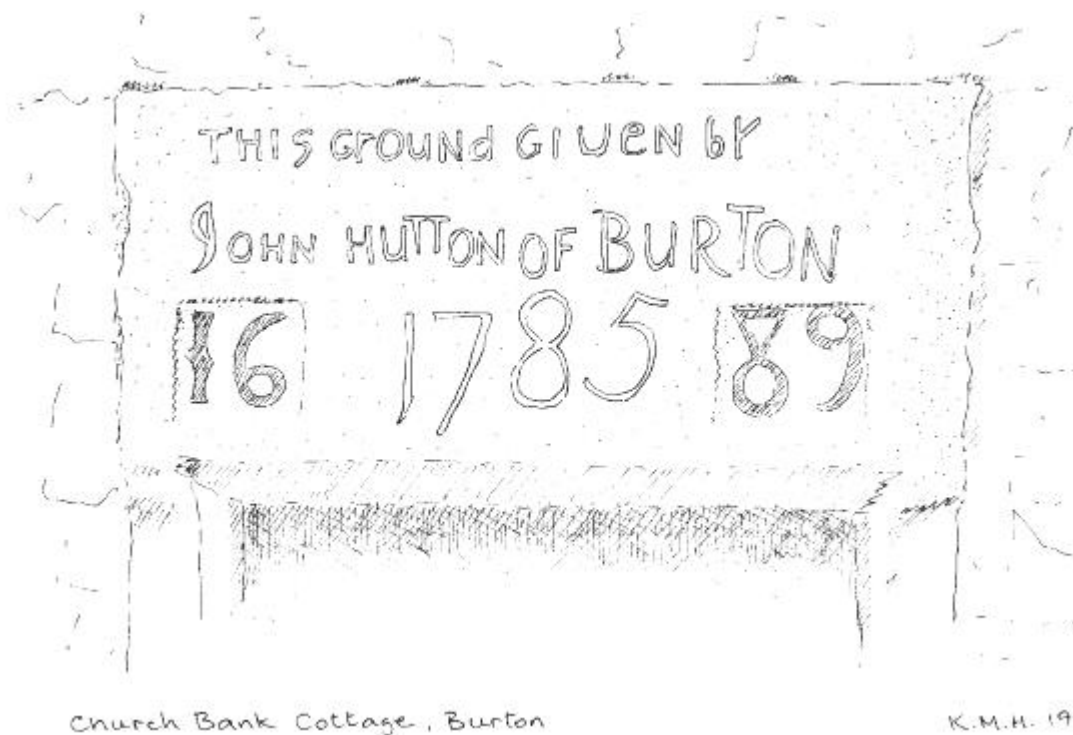 THIS GrOUNd GIUen bY
JOHN HUTTON OF BURTON
16 1785 89
Church Bank Cottage, Burton K.M.H. 19